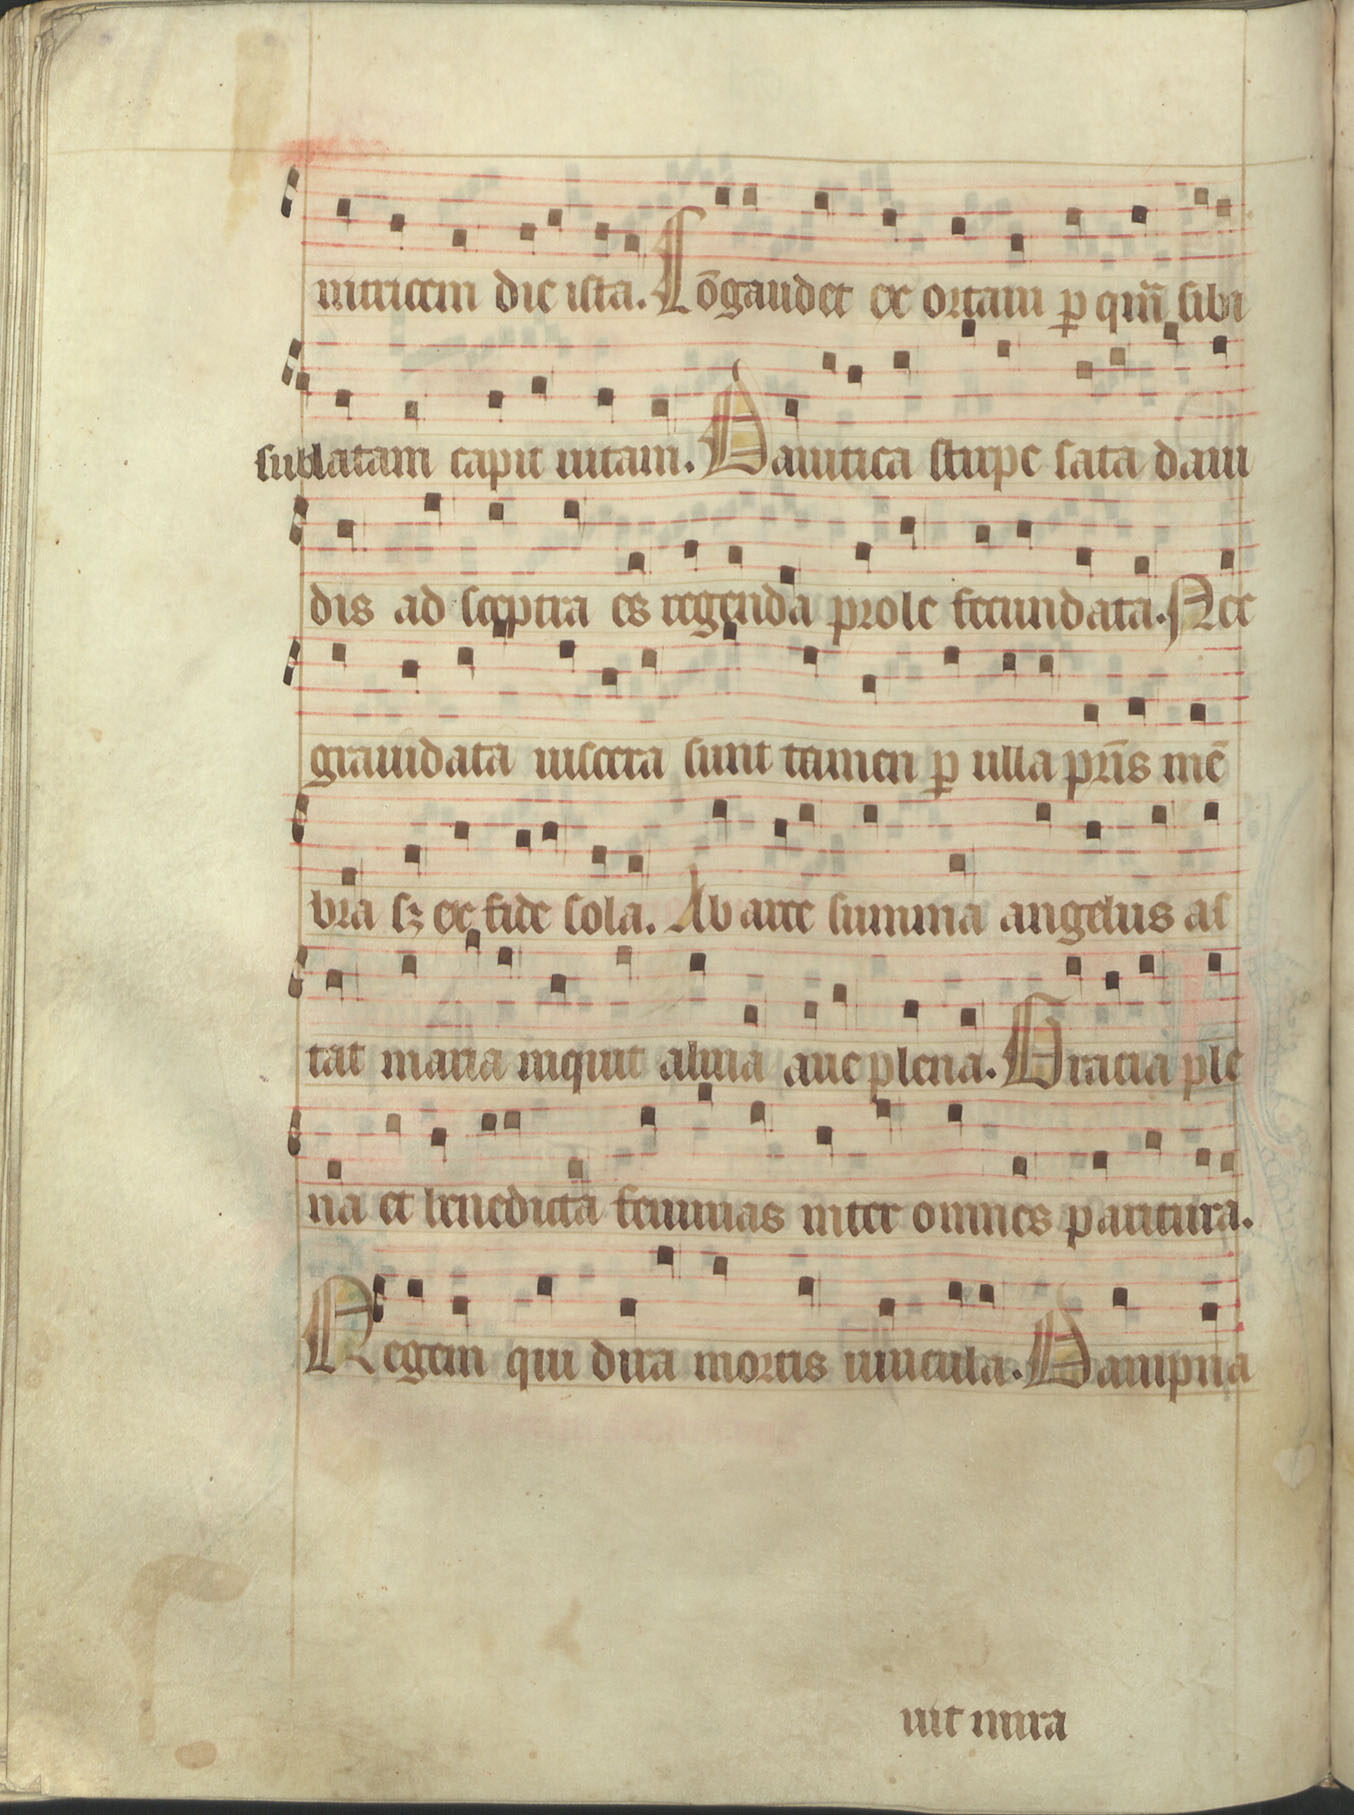 nitricem die ista. Cōgaudet ex ortam p̲ qm̄ sibi
sublatam capit uitam. Dauitica stirpe sata daui
dis ad sceptra es regenda prole fecundata. Nec
grauidata uiscera sunt tamen p̲ ulla pr̄is mē
bra sꝫ ex fide sola. Ab arce summa angelus as
tat maria inquit alma aue plena. Gracia ple
na et benedicta feminas inter omnes paritura.
Regem qui dira mortis uincula. Dampna
uit mira